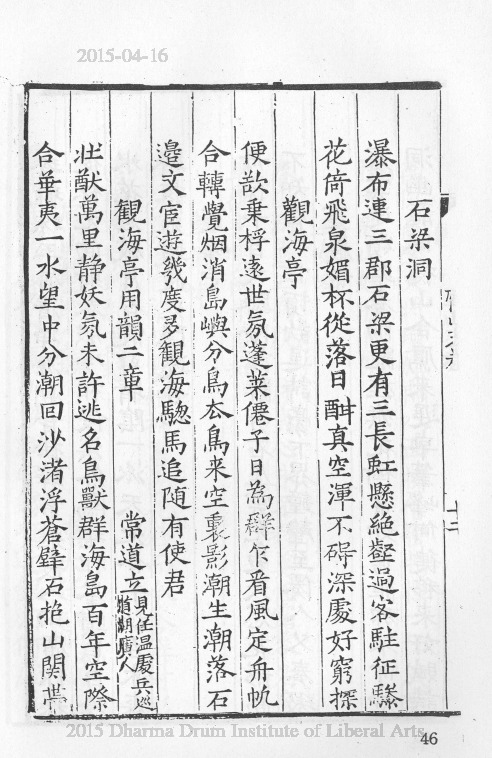 2015-04-16
石梁洞
瀑布連三郡石梁更有三長虹懸絶壑過客駐征驂
花倚飛泉媚杯從落日酣真空渾不碍深處好窮探
觀海亭
便欲乗桴遠世氛蓬莱僊子日為群乍看風定舟帆
合轉覺烟消島嶼分鳥去鳥来空裏影潮生潮落石
邉文宦遊幾度多觀海驄馬追随有使君
觀海亭用韻二章 常道立見任温處兵巡道湖廣人
壯猷萬里静妖氛未許逃名鳥獸群海島百年空際
合華夷一水望中分潮回沙渚浮蒼壁石抱山関帯
十二
46
2015 Dharma Drum Institute of Liberal Arts